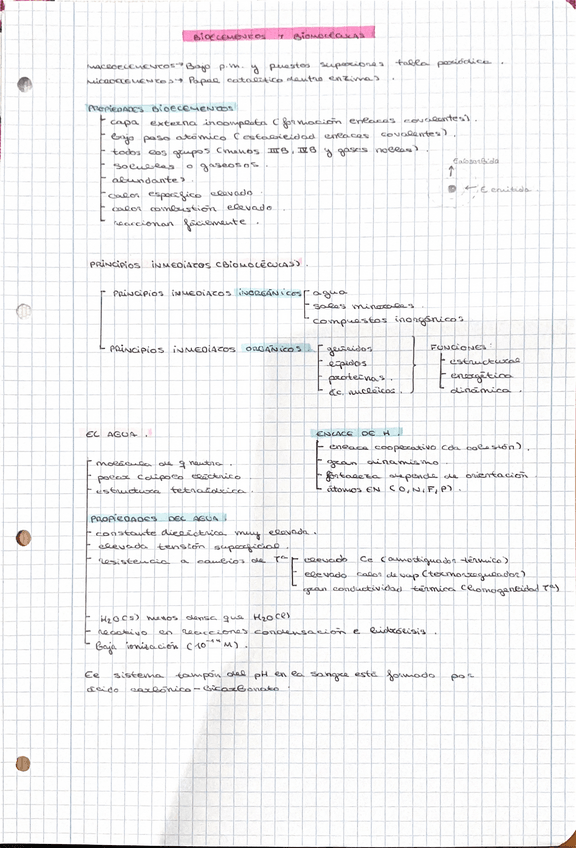 BIOELEMENTOS Y BIOMOLÉCULAS
MACROELEMENTOS → Bajo p.m. y puestos superiores tabla periódica.
MICROELEMENTOS → Papel catalítico dentro enzimas.
PROPIEDADES BIOELEMENTOS
capa externa incompleta (formación enlaces covalentes).
bajo peso atómico (estabilidad enlaces covalentes).
todos los grupos (menos IIIB, IVB y gases nobles)
solubles o gaseosos.
abundantes
calor específico elevado
calor combustión elevado
reaccionan fácilmente.
E absorbida
E emitida
PRINCIPIOS INMEDIATOS (BIOMOLÉCULAS).
PRINCIPIOS INMEDIATOS INORGÁNICOS
agua
sales minerales
compuestos inorgánicos
PRINCIPIOS INMEDIATOS ORGÁNICOS
glúcidos
lípidos
proteínas.
ác. nucleicos.
FUNCIONES:
estructural
energética
dinámica.
EL AGUA.
molécula de q neutra.
polar (dipolo eléctrico)
estructura tetraédrica.
ENLACE DE H.
enlace cooperativo (da cohesión).
gran dinamismo.
fortaleza depende de orientación
átomos EN (O, N, F, P).
PROPIEDADES DEL AGUA:
constante dieléctrica muy elevada.
elevada tensión superficial.
resistencia a cambios de Tª
elevado Ce (amortiguador térmico)
elevado calor de vap (termorregulador)
gran conductividad térmica (homogenidad Tª)
H2O(s) menos densa que H2O(l)
reactivo en reacciones condensación e hidrólisis.
Baja ionización (10⁻¹⁴ M).
El sistema tampón del pH en la sangre está formado por
ácido carbónico - bicarbonato.